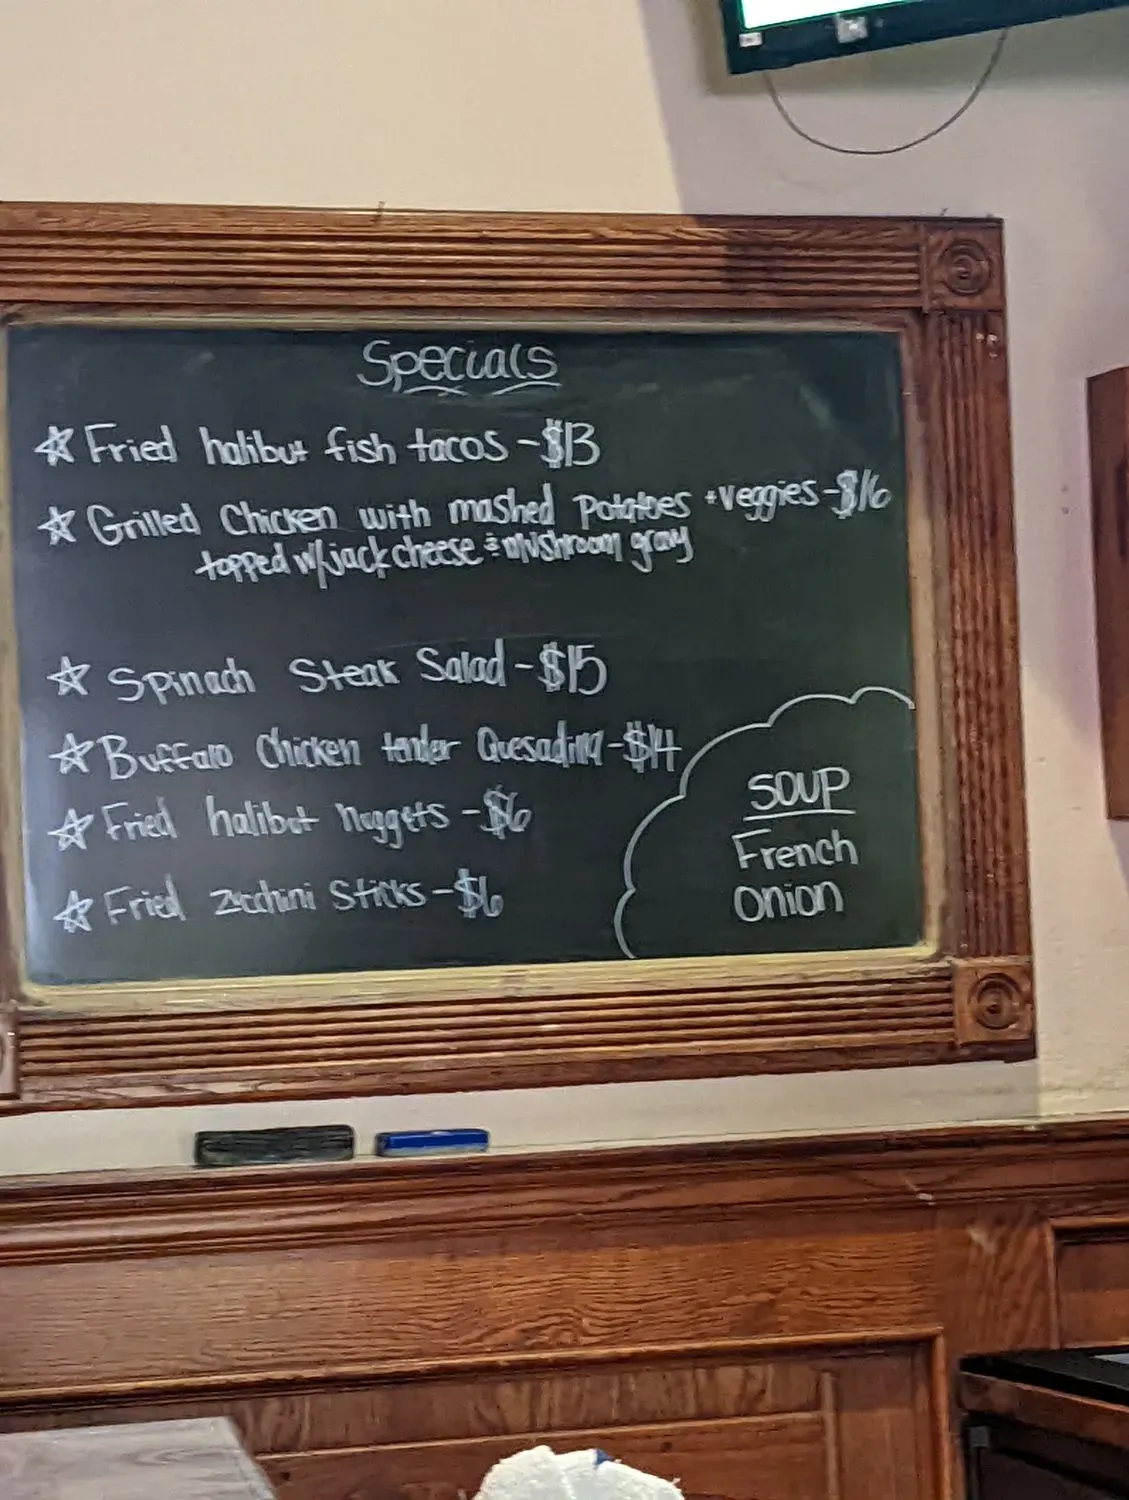 Specials
☆ Fried halibut fish tacos - $13
☆ Grilled Chicken with mashed potatoes + veggies - $16
topped w/jack cheese & mushroom gravy
☆ Spinach Steak Salad - $15
☆ Buffalo Chicken tender Quesadilla - $14
☆ Fried halibut nuggets - $6
☆ Fried zucchini Sticks - $6
SOUP
French
Onion